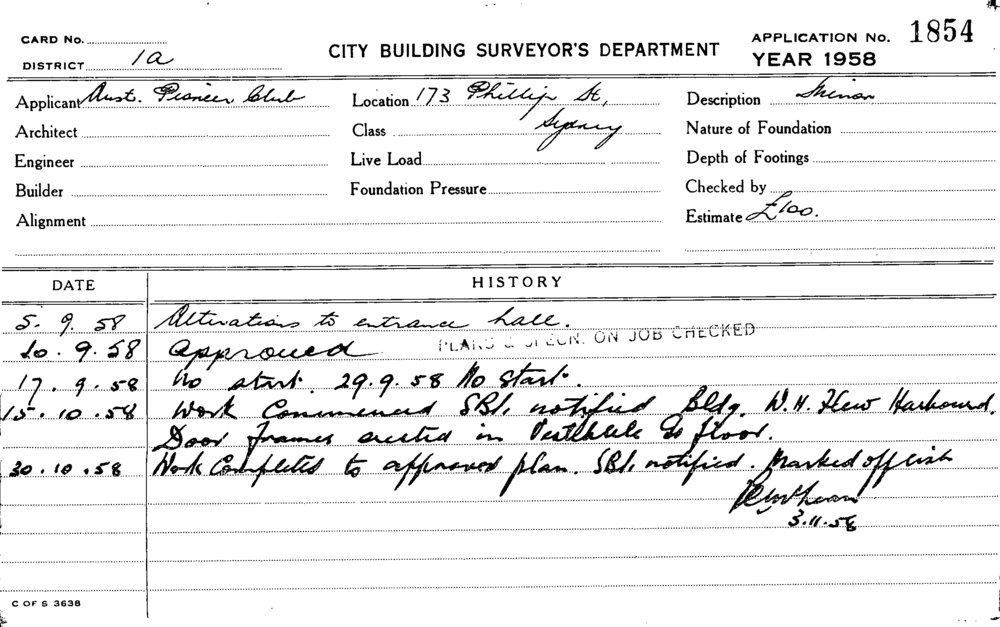 CARD No.
DISTRICT 1a
CITY BUILDING SURVEYOR'S DEPARTMENT
APPLICATION No. 1854
YEAR 1958
Applicant Aust. Pioneer Club
Location 173 Phillip St,
Sydney
Description Minor
Architect
Class
Nature of Foundation
Engineer
Live Load
Depth of Footings
Builder
Foundation Pressure
Checked by
Alignment
Estimate £100.
DATE HISTORY
5. 9. 58 Alterations to entrance hall.
10. 9. 58 Approved PLANS & SPECN. ON JOB CHECKED
17. 9. 58 No start. 29.9.58 No Start.
15. 10. 58 Work Commenced SBI. notified Bldg. W.H. Flew Harbourd.
Door frames erected in Vestibule Gd floor.
30. 10. 58 Work Completed to approved plan. SBI. notified. Marked off list
3.11.58
C OF S 3638